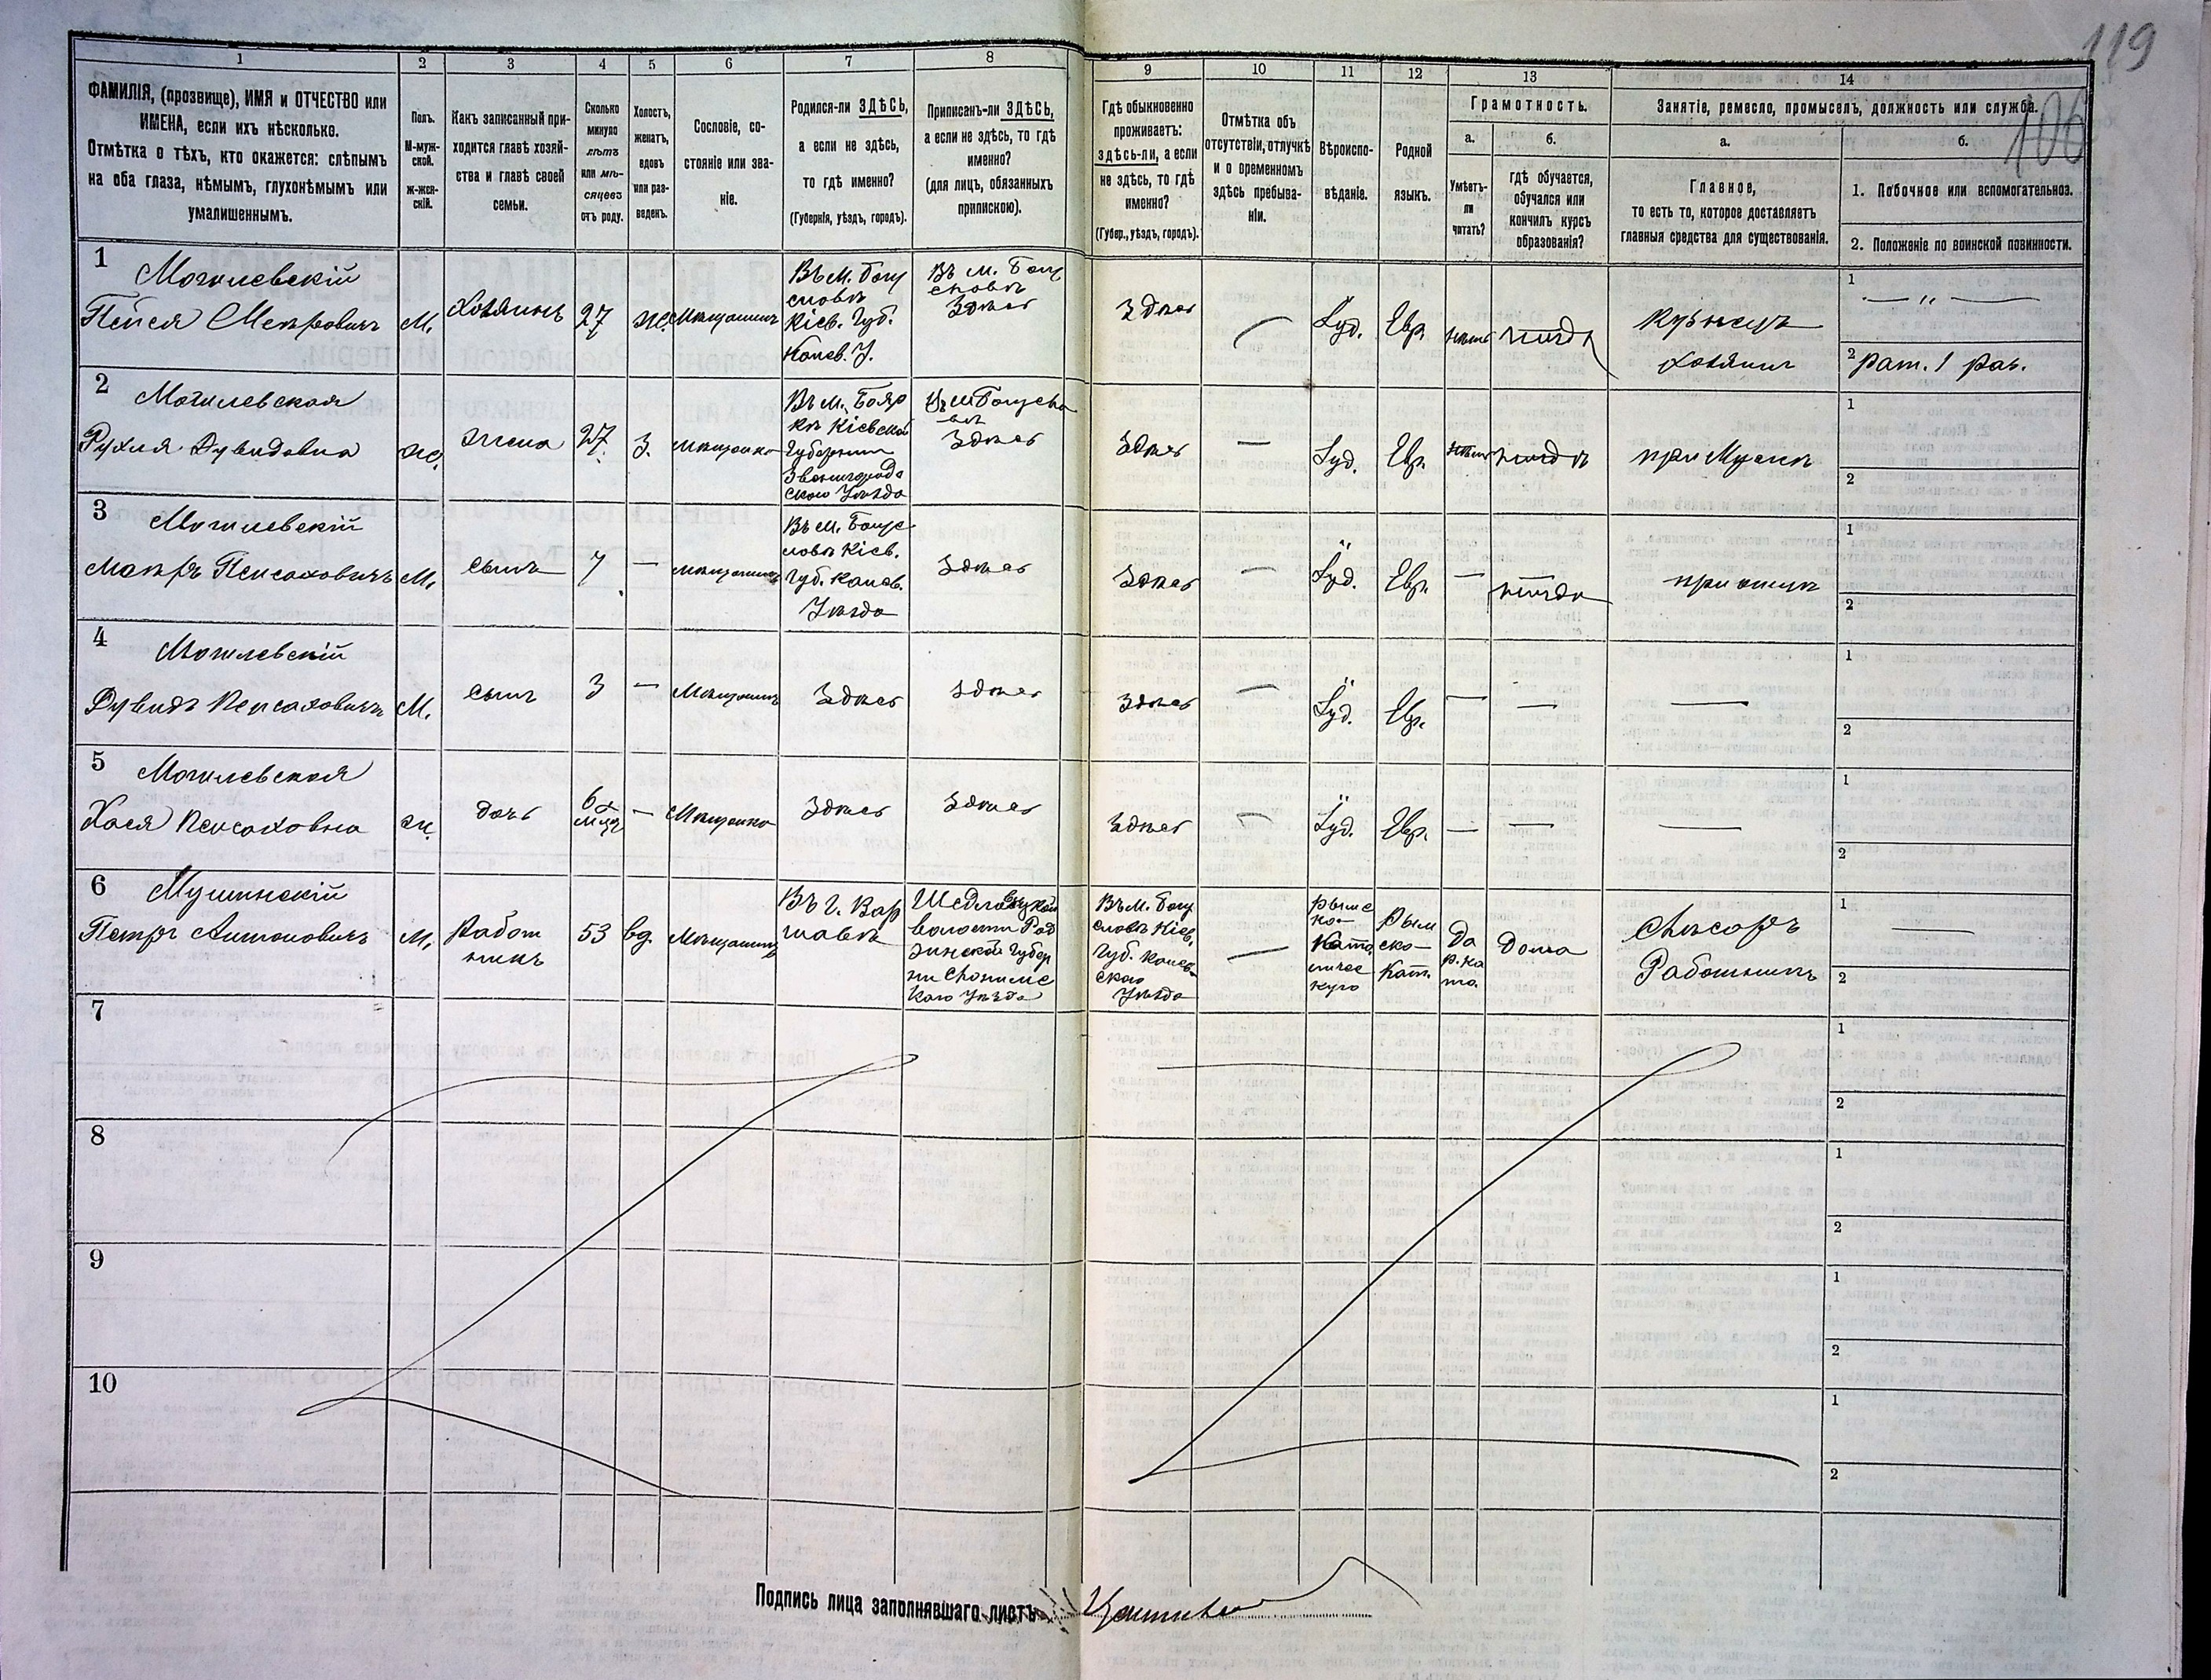 119
106
1
2
3
4
5
6
7
8
9
10
11
12
13
14
ФАМИЛІЯ, (прозвище), ИМЯ и ОТЧЕСТВО или
ИМЕНА, если ихъ нѣсколько.
Отмѣтка о тѣхъ, кто окажется: слѣпымъ
на оба глаза, нѣмымъ, глухонѣмымъ или
умалишеннымъ.
Полъ.
М-муж-
ской.
ж-жен-
скій.
Какъ записанный при-
ходится главѣ хозяй-
ства и главѣ своей
семьи.
Сколько
минуло
лѣтъ
или мѣ-
сяцевъ
отъ роду.
Холостъ,
женатъ,
вдовъ
или раз-
веденъ.
Сословіе, со-
стояніе или зва-
ніе.
Родился-ли ЗДѢСЬ,
а если не здѣсь,
то гдѣ именно?
(Губернія, уѣздъ, городъ).
Приписанъ-ли ЗДѢСЬ,
а если не здѣсь, то гдѣ
именно?
(для лицъ, обязанныхъ
припискою).
Гдѣ обыкновенно
проживаетъ:
здѣсь-ли, а если
не здѣсь, то гдѣ
именно?
(Губер., уѣздъ, городъ).
Отмѣтка объ
отсутствіи, отлучкѣ
и о временномъ
здѣсь пребыва-
ніи.
Вѣроиспо-
вѣданіе.
Родной
языкъ.
Грамотность.
а.
Умѣетъ-
ли
читать?
б.
гдѣ обучается,
обучался или
кончилъ курсъ
образованія?
Занятіе, ремесло, промыселъ, должность или служба.
а.
Главное,
то есть то, которое доставляетъ
главныя средства для существованія.
б.
1. Побочное или вспомогательное.
2. Положеніе по воинской повинности.
1
Могилевскій
Пейся Меировичъ
М.
Хозяинъ
27
ж.
Мѣщанинъ
Въ м. Богу
славѣ
Кіев. Губ.
Канев. У.
Въ м. Богу
славѣ
Здѣсь
Здѣсь
Іуд.
Евр.
нѣтъ
нигдѣ
Кузнецъ
хозяинъ
1
— „ —
2 Рат. 1 раз.
2
Могилевская
Рухля Дувидовна
ж.
жена
27
З.
мѣщанка
Въ м. Бояр
кѣ Кіевской
Губерніи
Звенигород
скаго Уѣзда
Здѣсь
Здѣсь
—
Іуд.
Евр.
нѣтъ
нигдѣ
при Мужѣ
1
2
3
Могилевскій
Меиръ Пейсаховичъ
М.
сынъ
7
—
мѣщанинъ
Въ м. Богус
лавѣ Кіев.
Губ. Канев.
Уѣзда
Здѣсь
Здѣсь
—
Іуд.
Евр.
—
нигдѣ
при отцѣ
1
2
4
Могилевскій
Дувидъ Пейсаховичъ
М.
сынъ
3
—
Мѣщанинъ
Здѣсь
Здѣсь
Здѣсь
—
Іуд.
Евр.
—
—
—
1
2
5
Могилевская
Хася Пейсаховна
ж.
дочь
6
мѣц
—
Мѣщанка
Здѣсь
Здѣсь
Здѣсь
—
Іуд.
Евр.
—
—
—
1
2
6
Мушинскій
Петръ Антоновичъ
М.
Работ
никъ
53
вд.
Мѣщанинъ
Въ г. Вар
шавѣ
волости
Уѣзда
Въ м. Богу
славѣ Кіев.
Губ. Канев-
скаго
Уѣзда
—
Рымс
ко-
Като
личес
кую
Рым
ско-
Кат.
Да
дома
Слѣсарь
Работникъ
1
—
2
7
1
2
8
1
2
9
1
2
10
1
2
Подпись лица заполнявшаго листъ